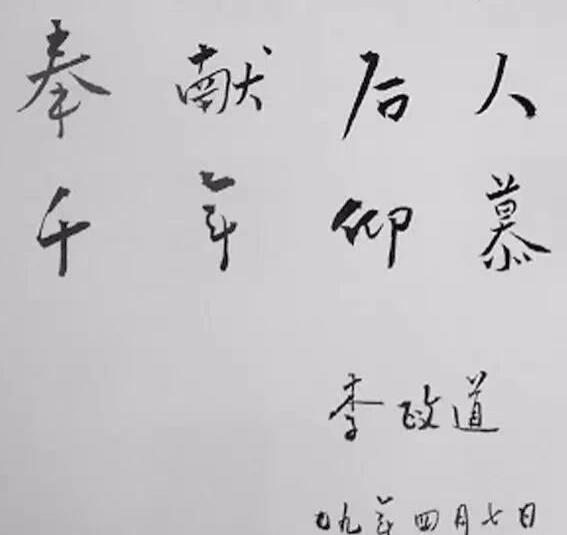 奉献后人
千年仰慕
李政道
九年四月七日